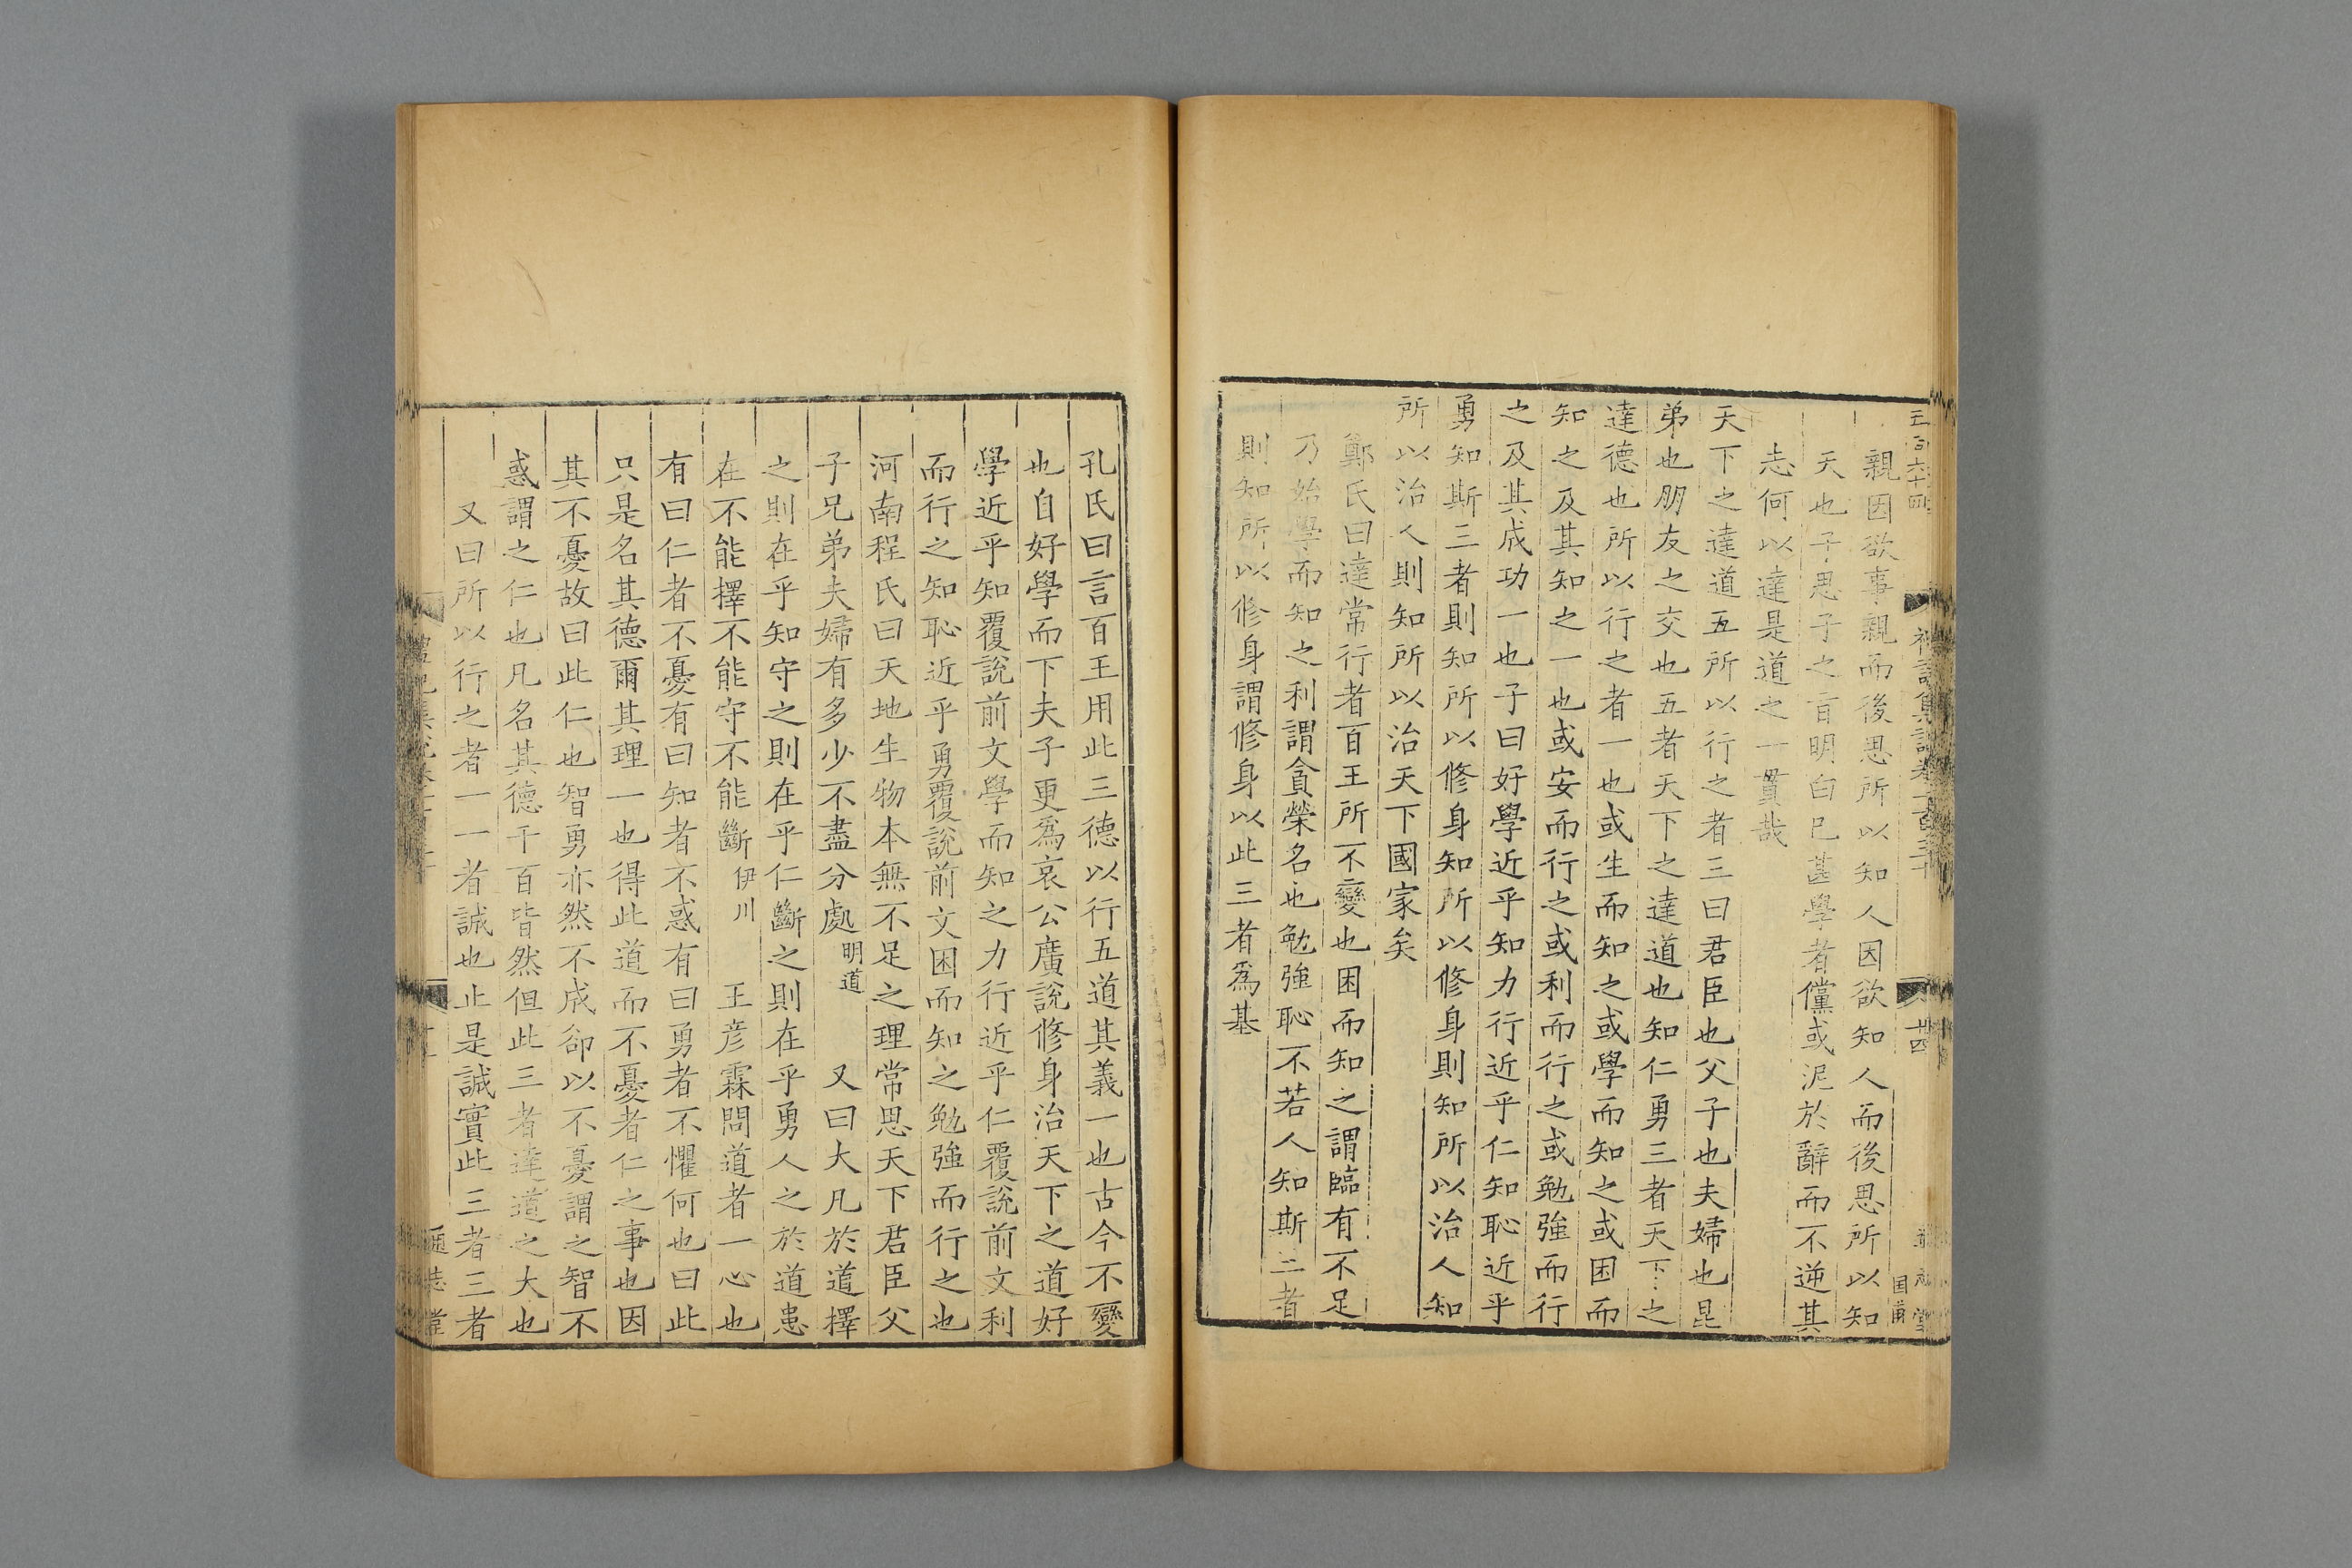 親因欲事親而後思所以知人因欲知人而後思所以知
天也子思子之言明白已甚學者儻或泥於辭而不逆其
志何以達是道之一貫哉
天下之達道五所以行之者三曰君臣也父子也夫婦也昆
弟也朋友之交也五者天下之達道也知仁勇三者天下之
達德也所以行之者一也或生而知之或學而知之或困而
知之及其知之一也或安而行之或利而行之或勉強而行
之及其成功一也子曰好學近乎知力行近乎仁知恥近乎
勇知斯三者則知所以修身知所以修身則知所以治人知
所以治人則知所以治天下國家矣
鄭氏曰達常行者百王所不變也困而知之謂臨有不足
乃始學而知之利謂貪榮名也勉強恥不若人知斯三者
則知所以修身謂修身以此三者爲基
孔氏曰言百王用此三德以行五道其義一也古今不變
也自好學而下夫子更爲哀公廣說修身治天下之道好
學近乎知覆說前文學而知之力行近乎仁覆說前文利
而行之知恥近乎勇覆說前文困而知之勉強而行之也
河南程氏曰天地生物本無不足之理常思天下君臣父
子兄弟夫婦有多少不盡分處明道 又曰大凡於道擇
之則在乎知守之則在乎仁斷之則在乎勇人之於道患
在不能擇不能守不能斷伊川 王彥霖問道者一心也
有曰仁者不憂有曰知者不惑有曰勇者不懼何也曰此
只是名其德爾其理一也得此道而不憂者仁之事也因
其不憂故曰此仁也智勇亦然不成卻以不憂謂之智不
惑謂之仁也凡名其德千百皆然但此三者達道之大也
又曰所以行之者一一者誠也止是誠實此三者三者
通志堂